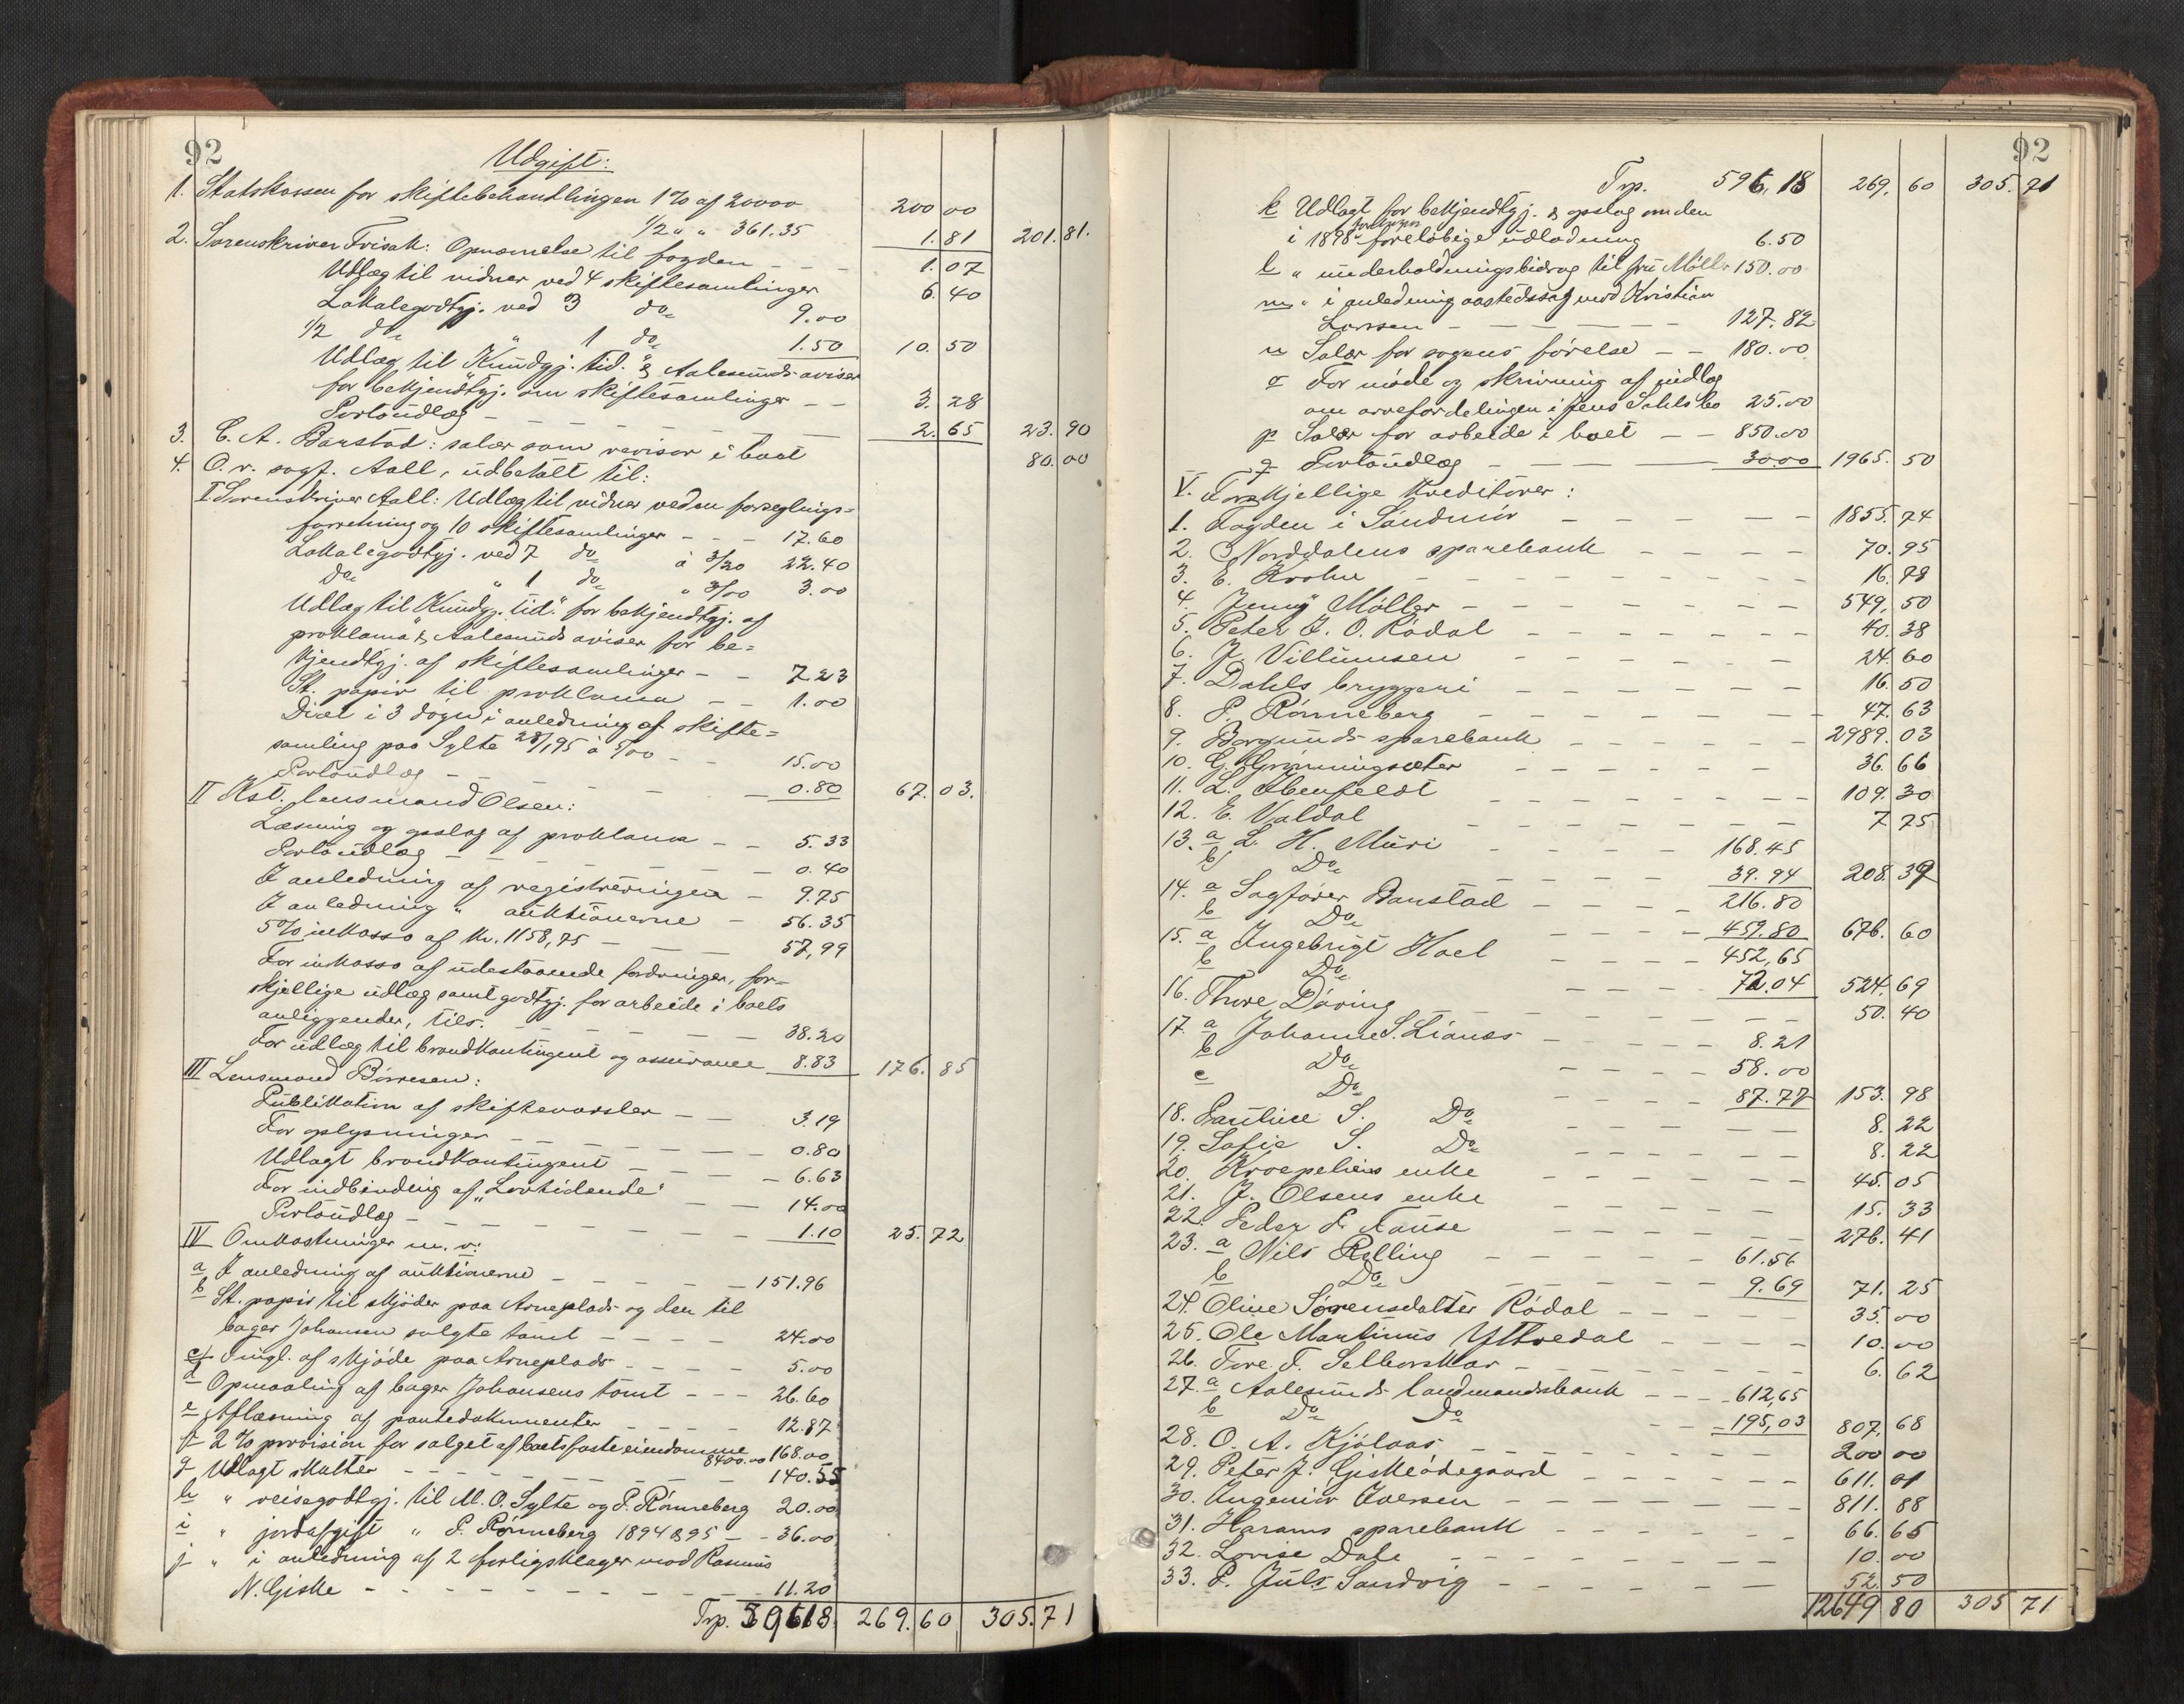 92
Udgift:
1. Statskassen for skiftebehandlingen 1% af 20000 200 00
1/2 " " 361.35 1.81 201.81.
2. Sorenskriver Frisak: Opnævnelse til fogden - - - 1.07
Udlæg til vidner ved 4 skiftesamlinger 6.40
Lokalegodtgj. ved 3 do 9.00
1/2 do " 1 do 1.50 10.50
Udlæg til Kundgj. tid. & Aalesunds aviser
for bekjendtgj. om skiftesamlinger - - 3.28
Portoudlæg - 2.65 23.90
3. C. A. Banstad: salær som revisor i boet 80.00
4. O.r. sagf. Aall, udbetalt til:
I Sorenskriver Aall: Udlæg til vidner ved en forseglings=
forretning og 10 skiftesamlinger - - - 17.60
Lokalegodtgj. ved 7 do à 3/20 22.40
Do " 1 do " 3/00 3.00
Udlæg til "Kundgj. tid." for bekjendtgj. af
proklama & Aalesunds aviser for be=
kjendtgj. af skiftesamlinger - - 7.23
St. papir til proklama - - 1.00
Diæt i 3 døgn i anledning af skifte=
samling paa Sylte 28/1 95 à 5/00 - - 15.00
Portoudlæg - - - 0.80 67.03.
II Kst. lensmand Olsen:
Læsning og opslag af proklama - - 5.33
Portoudlæg - - - 0.40
I anledning af registreringen - 9.75
I anledning " auktionerne - 56.35
5% inkasso af kr. 1158,75 - - 57,99
For inkasso af udestaaende fordringer, for=
skjellige udlæg samt godtgj. for arbeide i boets
anliggender, tils. - - - 38.20
For udlæg til brandkontingent og assurance 8.83 176.85
III Lensmand Børresen:
Publikation af skiftevarsler - - 3.19
For oplysninger - - - 0.80
Udlagt brandkontingent - - - 6.63
For indbinding af "Lovtidende" 14.00
Portoudlæg - - - 1.10 25.72
IV Omkostninger m. v:
a I anledning af auktionerne - - - 151.96
b St. papir til skjøder paa Arneplads og den til
bager Johansen solgte tomt - - - 24.00
c Tingl. af skjøde paa Arneplads - - - 5.00
d Opmaaling af bager Johansens tomt - - - 26.60
e Aflæsning af pantedokumenter - - - 12.87
f 2% provision for salget af boets faste eiendomme 8400.00 168.00
g Udlagt skatter - - - 140.55
h " reisegodtgj. til M. O. Sylte og P. Rønneberg 20.00
i " jordafgift " P. Rønneberg 1894 & 95 - - 36.00
j " i anledning af 2 forligsklager mod Rasmus
N. Giske - - - 11.20
Trp. 596 18. 269.60 305.71
92
Trp. 596,18 269,60 305.71
k Udlagt for bekjendtgj. & opslag om den
i 1898 foreløbige udlodning 6.50
l " underholdningsbidrag til fru Møller 150.00
m " i anledning aastedssag mod Kristian
Larsen - - - 127.82
n Salær for sagens førelse - - 180.00
o For møde og skrivning af indlæg
om arvefordelingen i Jens Dahls bo 25.00
p Salær for arbeide i boet - - 850.00
q Portoudlæg - - - 30.00 1965.50
V. Forskjellige kreditorer:
1. Fogden i Søndmør - - - 1855.74
2. Norddalens sparebank - - - 70.95
3. E. Krohn - - - 16.78
4. Jenny Møller - - - 549,50
5. Peter J. O. Rødal - - - 40.38
6. J. Villumsen - - - 24.60
7. Dahls bryggeri - - - 16.50
8. P. Rønneberg - - - 47.63
9. Borgunds sparebank - - - 2989.03
10. G. Grønningsæter - - - 36.66
11. L. Ibenfeldt - - - 109.30
12. E. Valdal - - - 7 75
13. a L. H. Muri - - - 168.45
b Do - - - 39.94 208.39
14. a Sagfører Banstad - - - 216.80
b Do - - - 459.80 676.60
15. a Ingebrigt Hoel - - - 452,65
b Do - - - 72.04 524,69
16. Thore Døving - - - 50.40
17. a Johanne S. Lianes - - - 8.21
b Do - - - 58.00
c Do - - - 87.77 153.98
18. Pauline S. Do - - - 8.22
19. Sofie S. Do - - - 8.22
20. Kroepeliens enke - - - 45.05
21. J. Olsens enke - - - 15.33
22. Peder P. Fause - - - 276.41
23. a Nils Relling - - - 61.56
b Do - - - 9.69 71.25
24. Oline Sørensdatter Rødal - - 35.00
25. Ole Martinus Ytredal - - - 10.00
26. Tore T. Selborskar - - - 6.62
27. a Aalesunds landmandsbank - - - 612,65
b Do Do - - 195,03 807,68
28. O. A. Kjølaas - - - 200 00
29. Peter J. Giskeødegaard - - - 611.01
30. Ingeniør Iversen - - - 811.88
31. Harams sparebank - - - 66.65
32. Lovise Dale - - - 10.00
33. P. Juls Sandvig - - - 52.50
12649 80 305 71